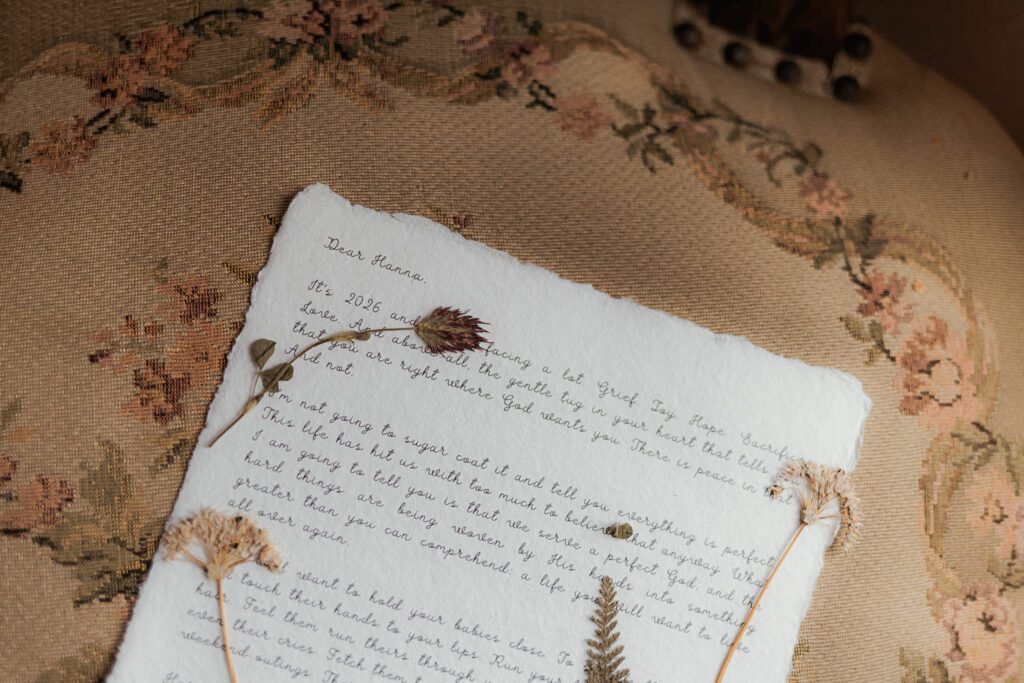 Dear Hanna,
It's 2026 and facing a lot. Grief. Joy. Hope. Sacrifice.
Love. And above all, the gentle tug in your heart that tells
that you are right where God wants you. There is peace in that.
And not.
I'm not going to sugar coat it and tell you everything is perfect.
This life has hit us with too much to believe that anyway. What
I am going to tell you is that we serve a perfect God, and the
hard things are being woven by His hands into something
greater than you can comprehend; a life you will want to live
all over again.
want to hold your babies close. To
touch their hands to your lips. Run your
hair. Feel them run theirs through
even their cries. Fetch them
weekend outings.